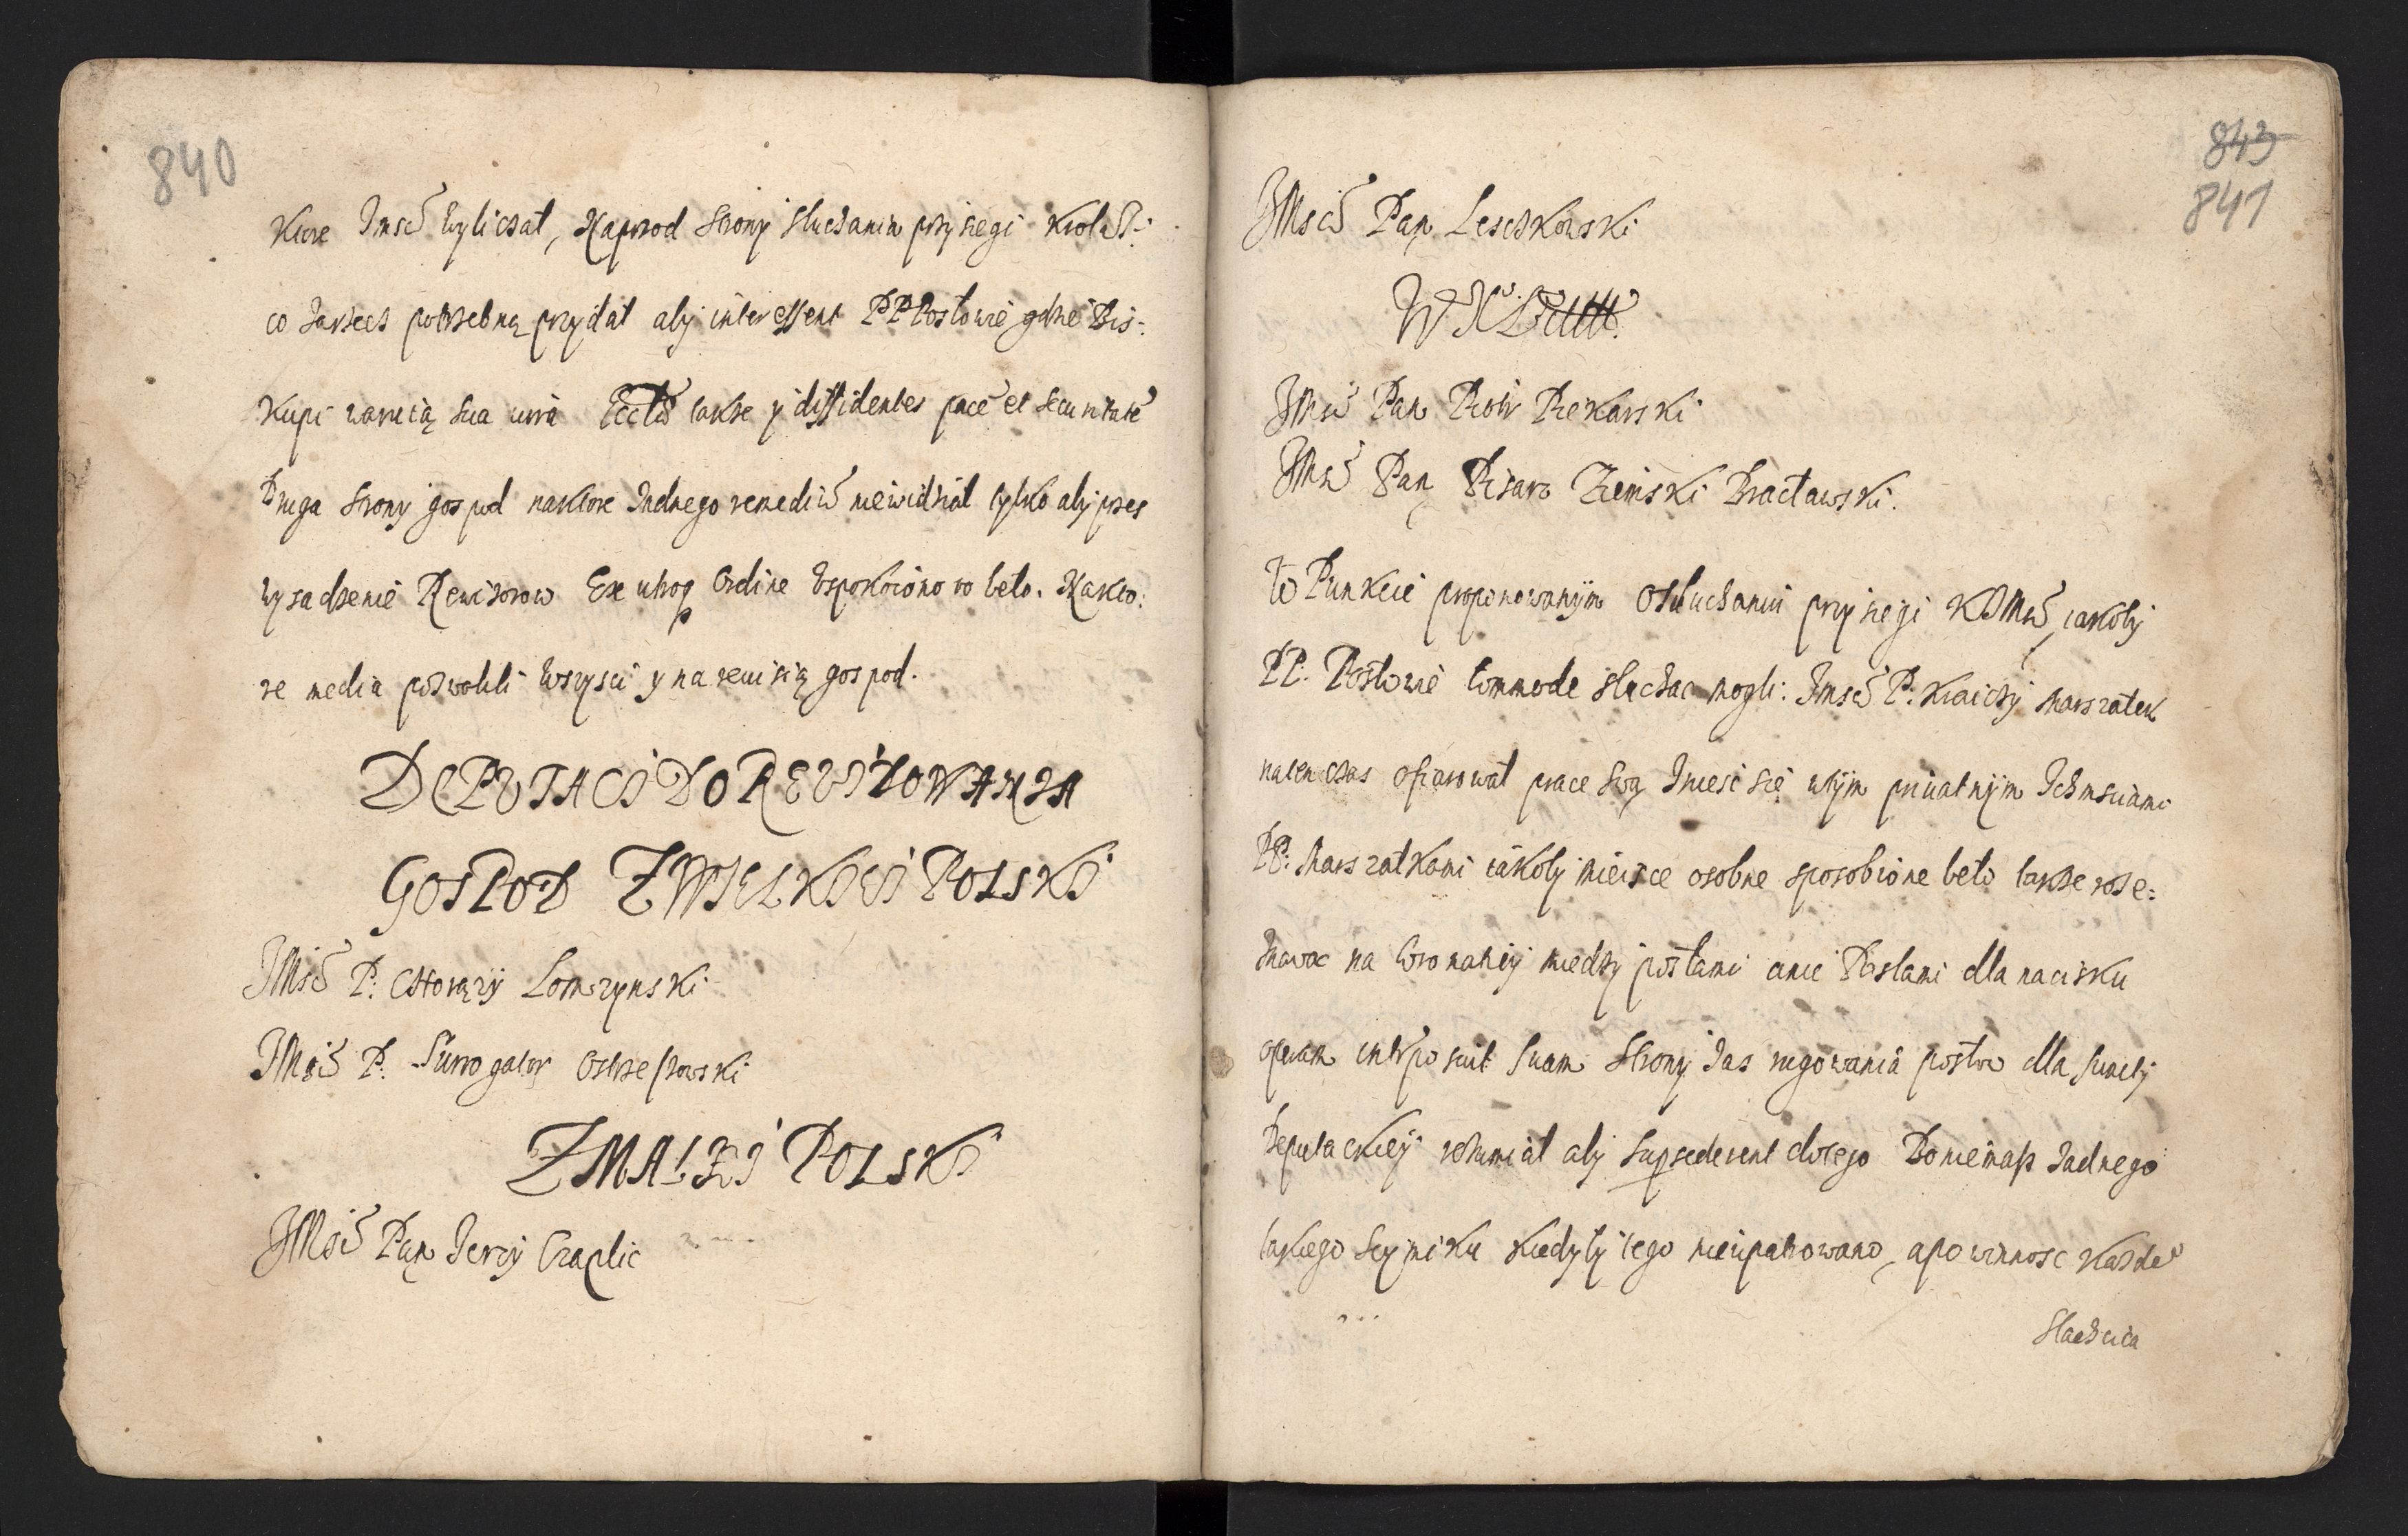 840
Ktore Jmsć wyliczał, Naprzod strony słuchania przysięgi Krola J:
co zarzecz potrzebną przydał aby interessent PP Posłowie gdzie Bis:
Kupi waruią sua iura Eccle także y dissidentes pace et securitate
Druga strony gospod naktore żadnego remediu niewidział tylko aby przez
wysadzenie Rewizorow Ex utroq Ordine Uspokoiono to beło. Nakto:
re media pozwolili wszyscy y na rewisią gospod.
DEPUTACI DO REWIZOWANIA
GOSPOD Z WIELKIEI POLSKI
JMsć P: Chorązy Lomzynski
JMsć P. Surrogator Ostrzeszowski
Z MALEI POLSKI
JMsć Pan Jerzy Czaplic
843
841
JMsć Pan Leszkowski
W X Litt
JMsć Pan Piotr Piekarski
JMsć Pan Pisarz Ziemski Bracławski.
W Punkcie proponowanym Osłuchaniu przysięgi KJMsci, iakoby
PP. Posłowie commode słuchac mogli: Jmsć P: Kraiczy Marszałek
natenczas ofiarowal prace swą zniesc się wtym priuatnym Ichmsciami
PP: Marszałkami iakoby mieisce osobne sposobione beło także roze:
znawac na koronacij miedzy posłami a nie Posłami dla nacisku
operam interposuit suam Strony zas rugowania posłow dla funcij
Deputackiey rozumiał aby supsederent dotego Boniemasz żadnego
takiego Seymiku kiedyby tego nieupatrowano, a powinnosc każde
Slachcica